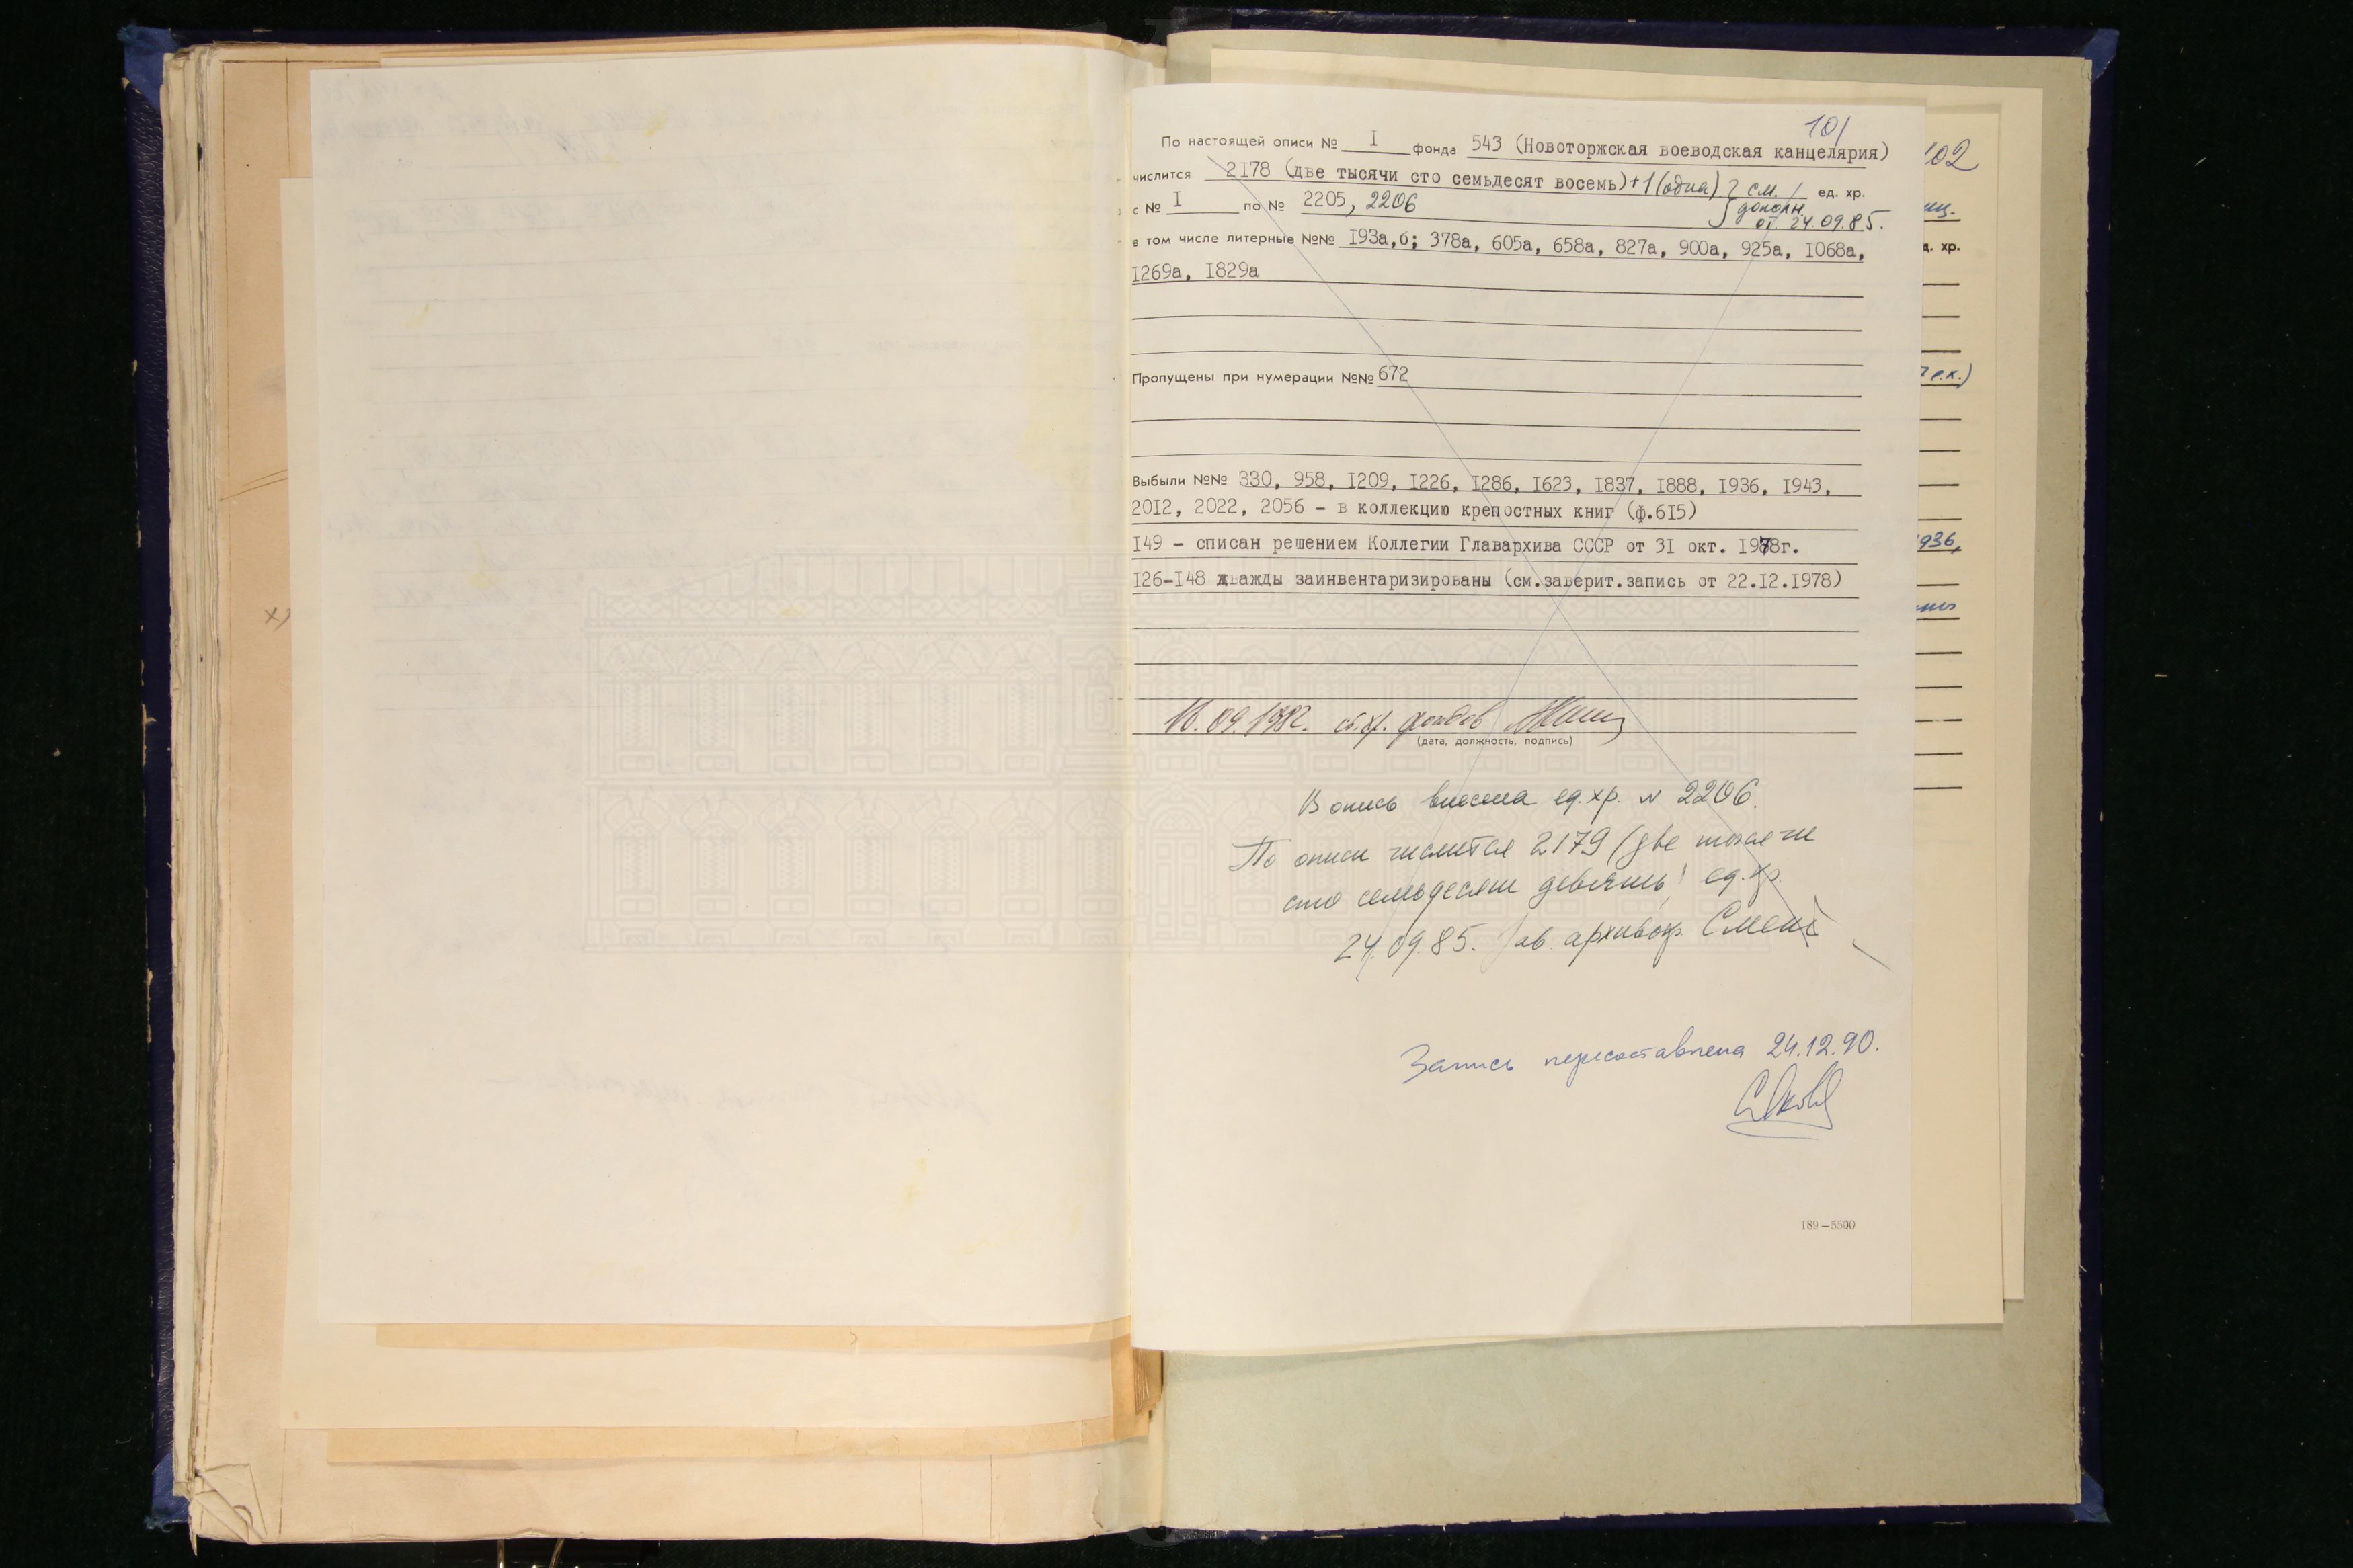 101
По настоящей описи № I фонда 543 (Новоторжская воеводская канцелярия)
числится 2178 (две тысячи сто семьдесят восемь)+1(одна) см. ед. хр.
с № I по № 2205, 2206 дополн.
от 24.09.85.
в том числе литерные №№ I93а,б; 378а, 605а, 658а, 827а, 900а, 925а, I068а,
I269а, I829а
Пропущены при нумерации №№ 672
Выбыли №№ 330, 958, I209, I226, I286, I623, I837, I888, I936, I943,
20I2, 2022, 2056 - в коллекцию крепостных книг (ф.6I5)
I49 - списан решением Коллегии Главархива СССР от 3I окт. I978г.
I26-I48 дважды заинвентаризированы (см.заверит.запись от 22.I2.I978)
ст.хр. фондов
(дата, должность, подпись)
В опись внесена ед.хр. № 2206.
По описи числится 2179 (две тысячи
сто семьдесят девять) ед.хр.
24.09.85. Зав. архивохр.
Запись пересоставлена 24.12.90.
189—5500
102
д. хр.
936,